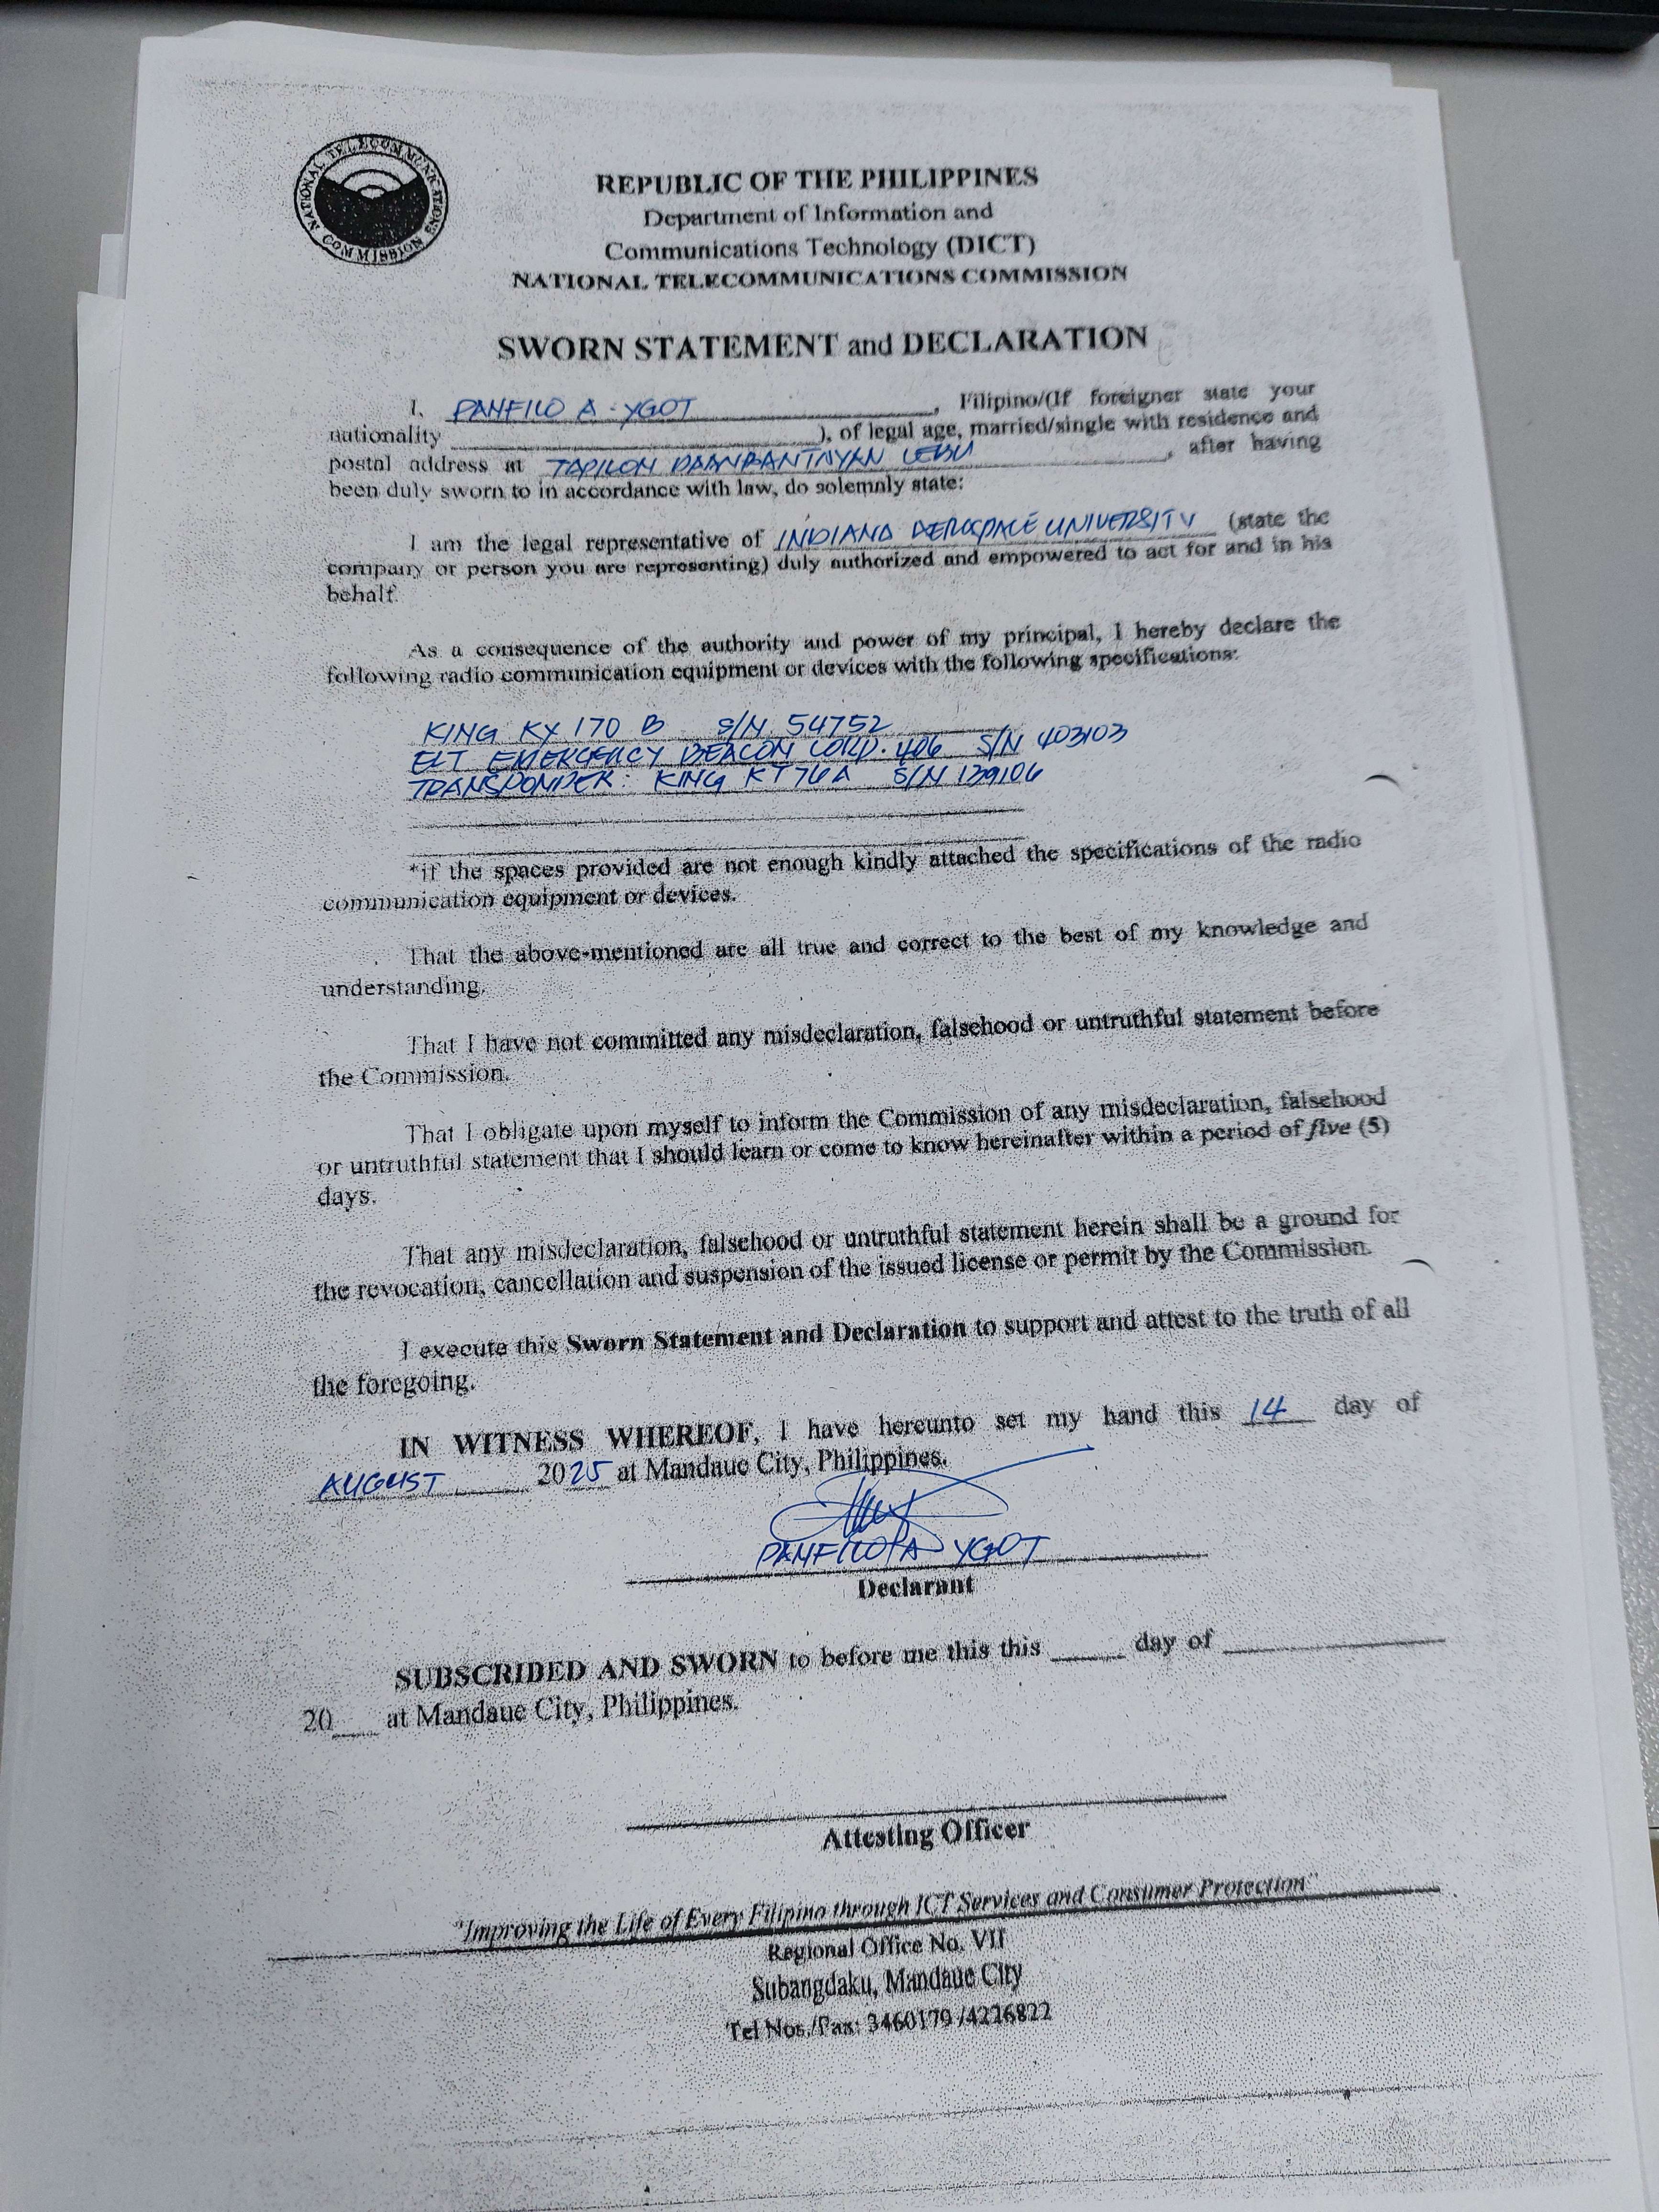 NATIONAL TELECOMMUNICATIONS COMMISSION
REPUBLIC OF THE PHILIPPINES
Department of Information and
Communications Technology (DICT)
NATIONAL TELECOMMUNICATIONS COMMISSION
SWORN STATEMENT and DECLARATION
I, PANFILO A. YGOT, Filipino/(If foreigner state your
nationality ), of legal age, married/single with residence and
postal address at TAPILON DAANBANTAYAN CEBU, after having
been duly sworn to in accordance with law, do solemnly state:
I am the legal representative of INDIANA AEROSPACE UNIVERSITY (state the
company or person you are representing) duly authorized and empowered to act for and in his
behalf.
As a consequence of the authority and power of my principal, I hereby declare the
following radio communication equipment or devices with the following specifications:
KING KX 170 B S/N 54752
ELT EMERGENCY BEACON CORP. 406 S/N 403103
TRANSPONDER: KING KT76A S/N 139106
*if the spaces provided are not enough kindly attached the specifications of the radio
communication equipment or devices.
That the above-mentioned are all true and correct to the best of my knowledge and
understanding.
That I have not committed any misdeclaration, falsehood or untruthful statement before
the Commission.
That I obligate upon myself to inform the Commission of any misdeclaration, falsehood
or untruthful statement that I should learn or come to know hereinafter within a period of five (5)
days.
That any misdeclaration, falsehood or untruthful statement herein shall be a ground for
the revocation, cancellation and suspension of the issued license or permit by the Commission.
I execute this Sworn Statement and Declaration to support and attest to the truth of all
the foregoing.
IN WITNESS WHEREOF, I have hereunto set my hand this 14 day of
AUGUST 2025 at Mandaue City, Philippines.
PANFILO A YGOT
Declarant
SUBSCRIBED AND SWORN to before me this this day of
20 at Mandaue City, Philippines.
Attesting Officer
"Improving the Life of Every Filipino through ICT Services and Consumer Protection"
Regional Office No. VII
Subangdaku, Mandaue City
Tel Nos./Fax: 3460179 /4226822